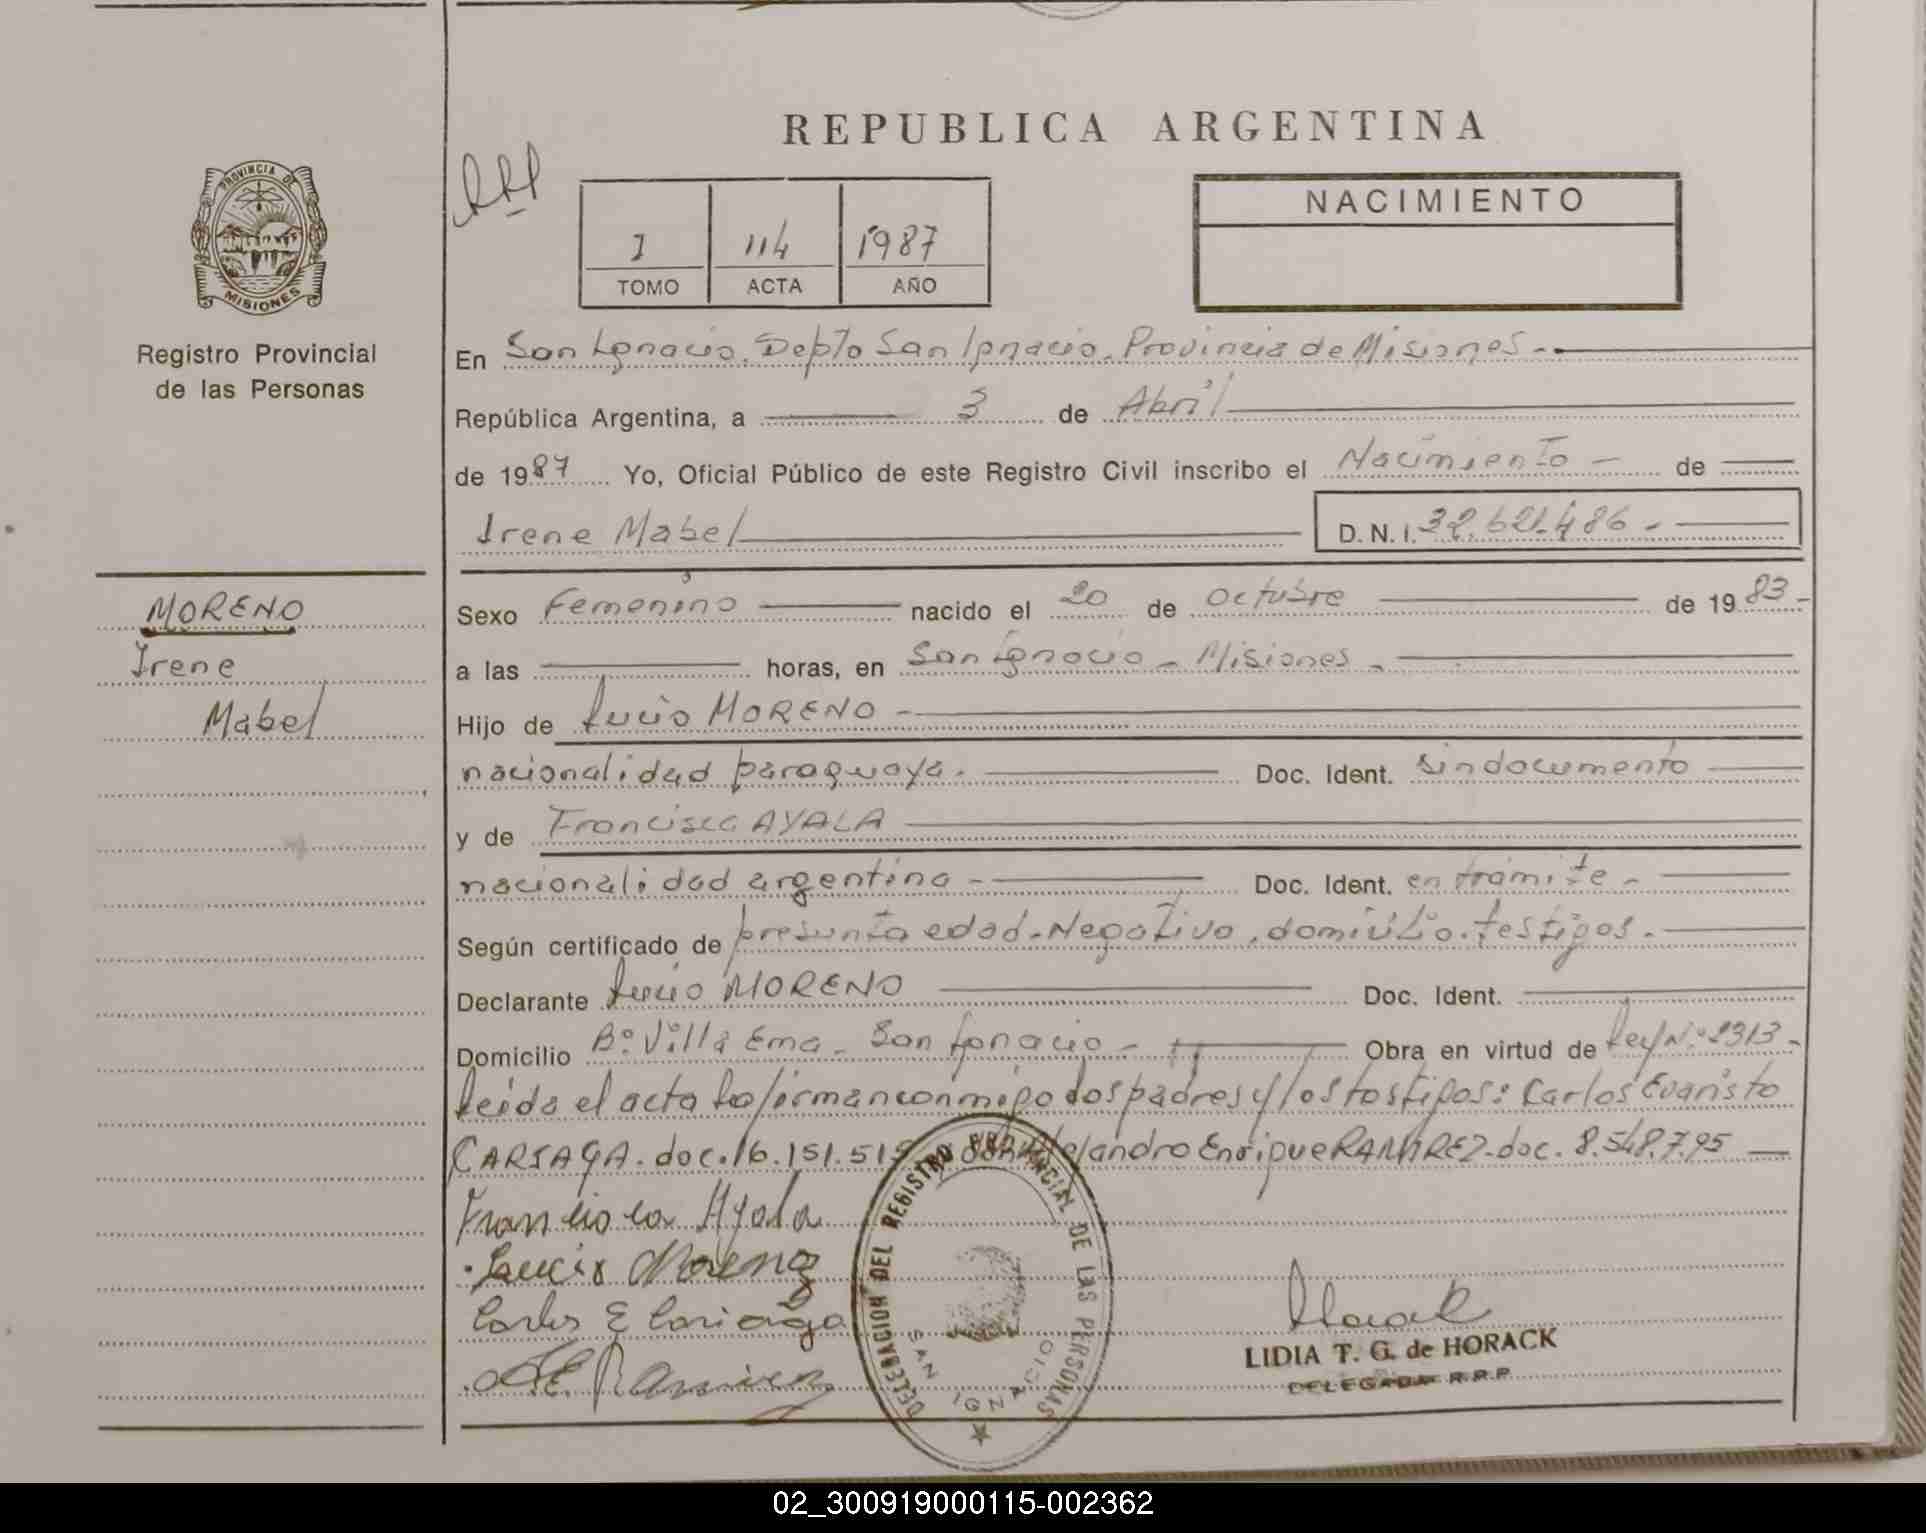 REPUBLICA ARGENTINA
PROVINCIA DE MISIONES
Registro Provincial
de las Personas
I 114 1987
TOMO ACTA AÑO
NACIMIENTO
En San Ignacio. Depto San Ignacio. Provincia de Misiones.-
República Argentina, a 3 de Abril
de 1987 Yo, Oficial Público de este Registro Civil inscribo el Nacimiento - de
Irene Mabel D. N. I. 32.621.486.-
MORENO
Irene
Mabel
Sexo Femenino nacido el 20 de octubre de 1983-
a las horas, en San Ignacio - Misiones.-
Hijo de Lucio MORENO -
nacionalidad paraguaya. Doc. Ident. sin documento
y de Francisca AYALA
nacionalidad argentina - Doc. Ident. en trámite.-
Según certificado de presunta edad. Negativo. domicilio. testigos.-
Declarante Lucio MORENO Doc. Ident.
Domicilio B° Villa Ema - San Ignacio - Obra en virtud de Ley N° 2313-
Leída el acta la firman conmigo los padres y los testigos: Carlos Evaristo
CARIAGA. doc. 16.151.519 Alejandro Enrique RAMIREZ. doc. 8.548.795
Francisca Ayala
Lucio Moreno
Carlos E Cariaga
A.E. Ramirez
DELEGACION DEL REGISTRO PROVINCIAL DE LAS PERSONAS
SAN IGNACIO
LIDIA T. G. de HORACK
DELEGADA R.R.P.
02_300919000115-002362